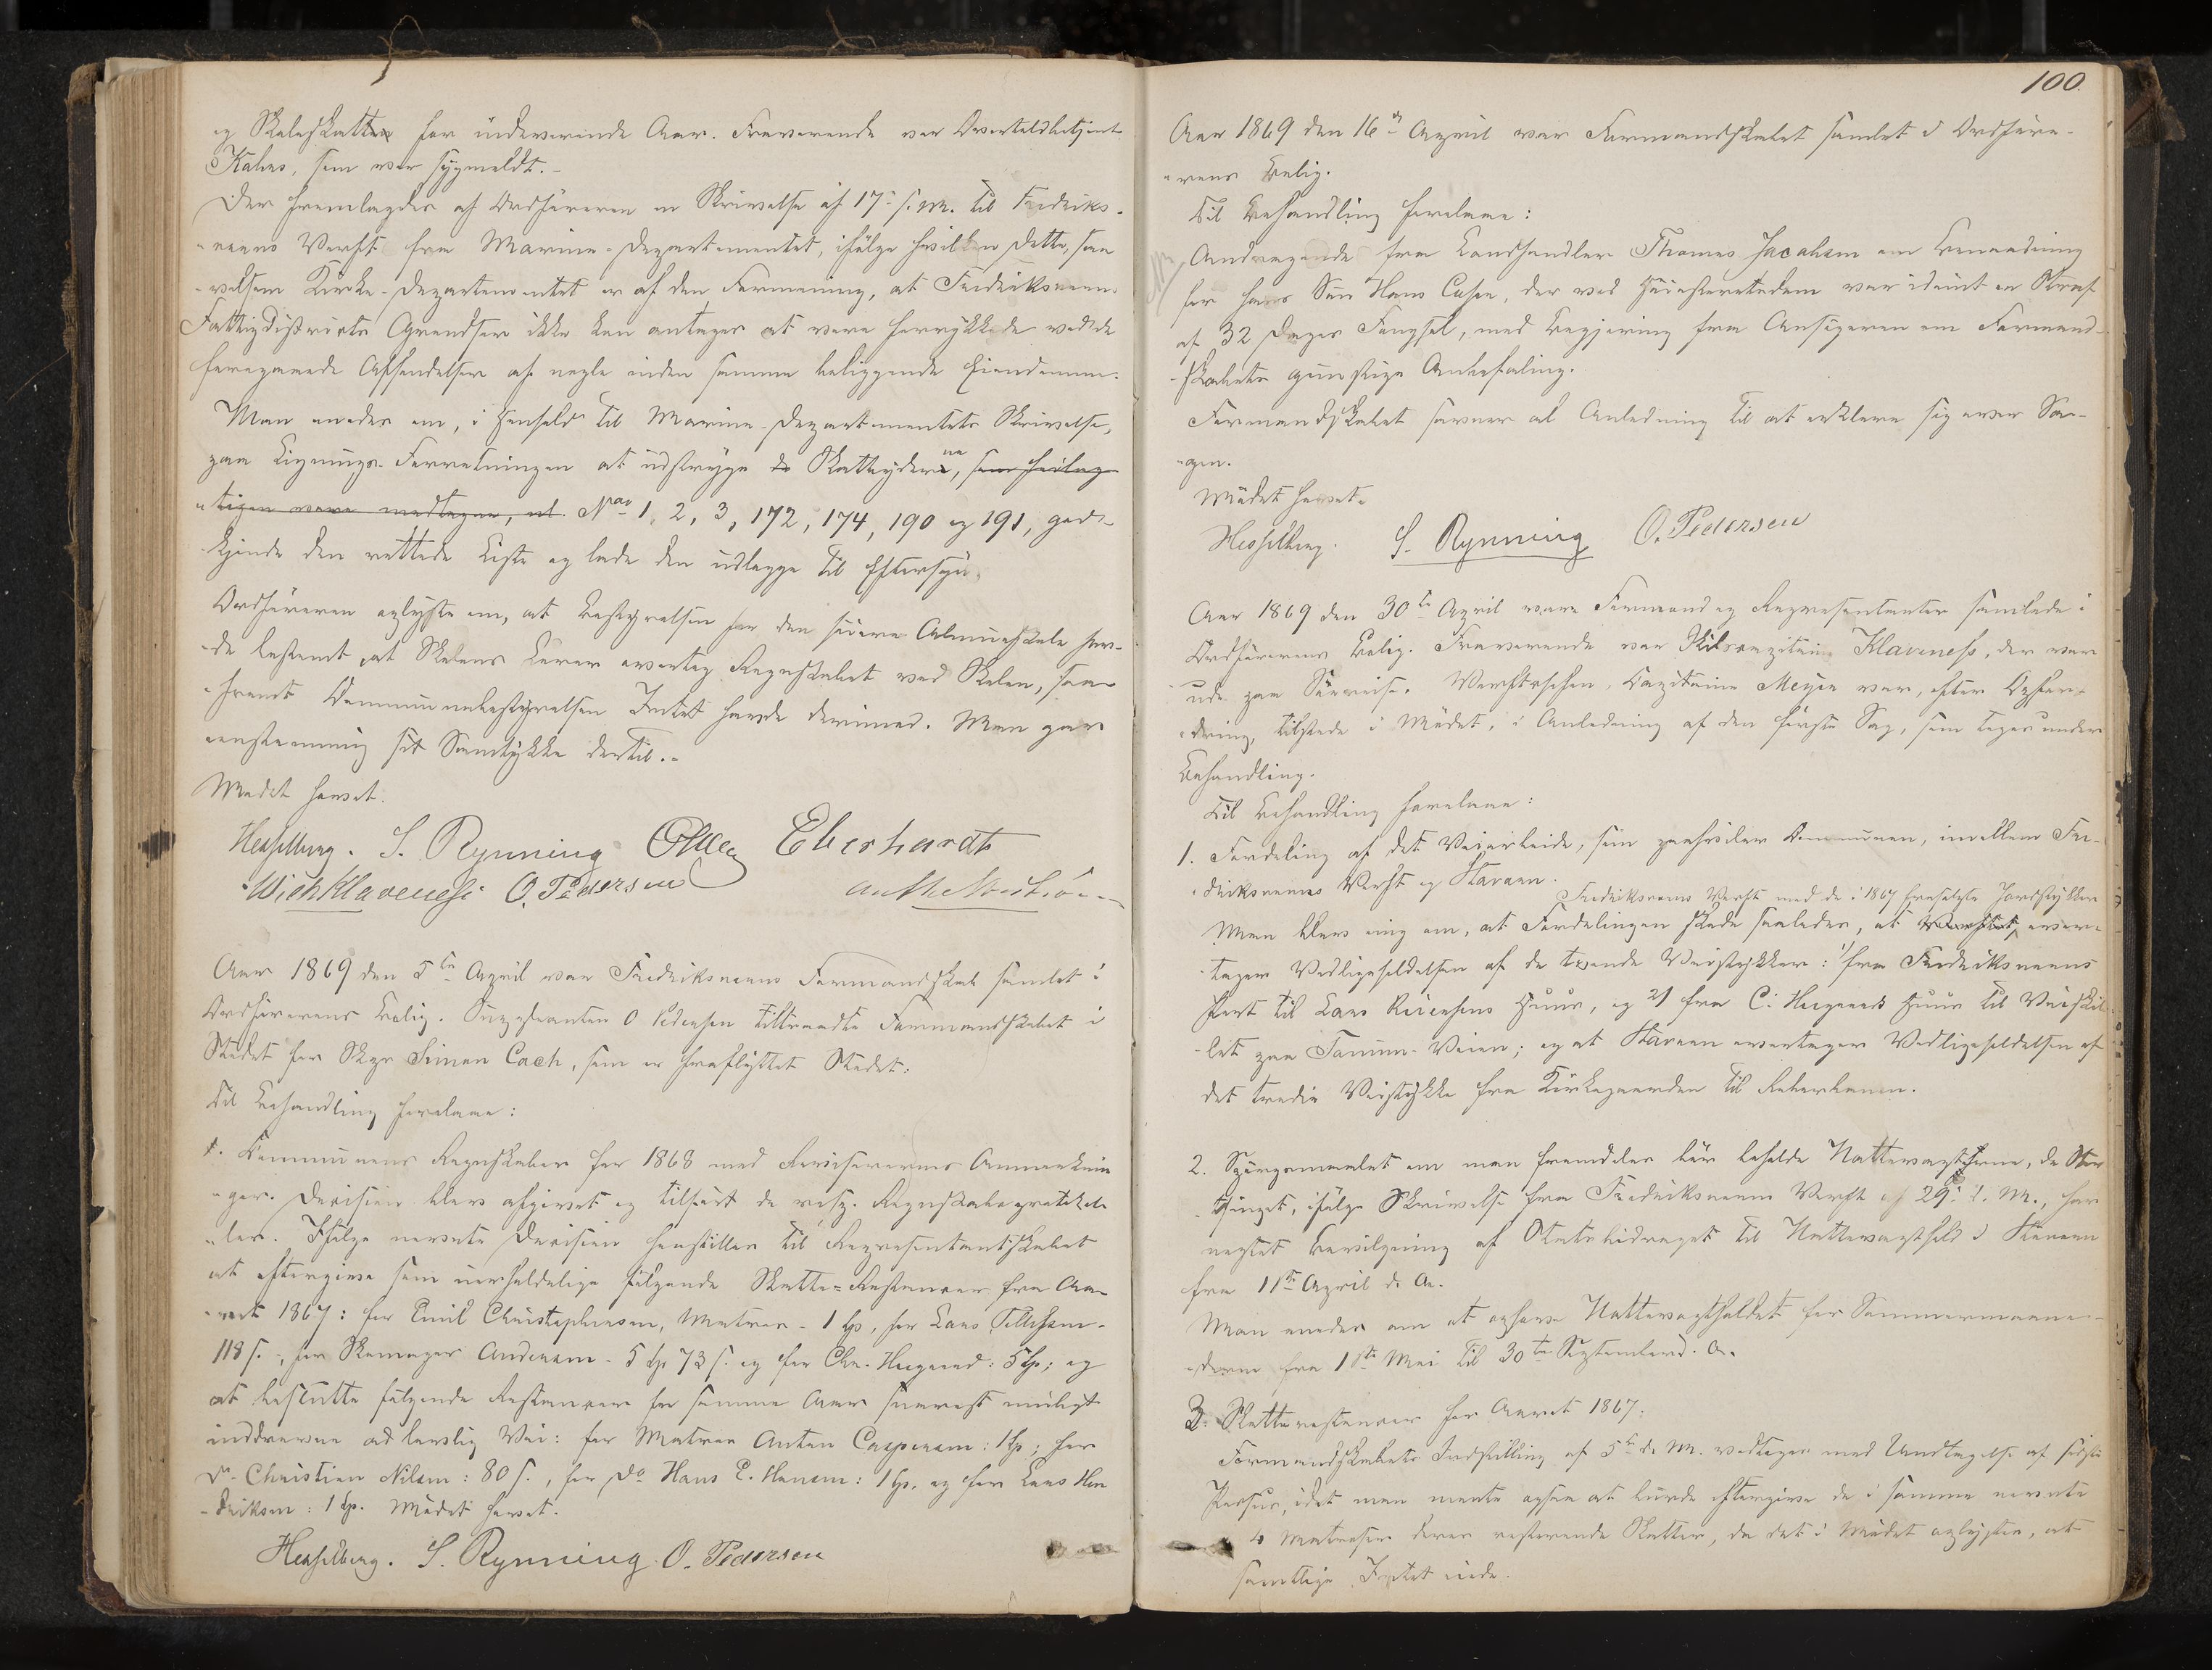 og Skoleskatten for indeværende Aar. Fraværende var Overtoldbetjent
Kahrs, som var sygmeldt.-
Der fremlagdes af Ordføreren en Skrivelse af 17de f. M. til Fredriks-
-værns Verft fra Marine-Departementet, ifølge hvilken dette, saa
-velsom Kirke-Departementet er af den Formening, at Fredriksværns
Fattigdistrikts Grændser ikke kan antages at være forrykkede ved de
foregaaede Afhændelser af nogle inden samme beliggende Eiendomme.
Man enedes om, i Henhold til Marine-Departementets Skrivelse,
paa Ligningsforretningen at udstryge de Skatteyderne, som feilag-
-tigen vare medtagne, nl. No 1, 2, 3, 172, 174, 190 og 191, god-
kjende den rettede Liste og lade den udlægge til Eftersyn.
Ordføreren oplyste om, at Bestyrelsen for den høiere Almueskole hav-
-de bestemt, at Skolens Lærer overtog Regnskabet ved Skolen, saa-
-fremt Communebestyrelsen Intet havde derimod. Man gav
eenstemmig sit Samtykke dertil.-
Mødet hævet.
Hesselberg. S. Rynning Eberhardt
Wich Klaveness O. Pedersen
Aar 1869 den 5te April var Fredriksværns Formandskab samlet i
Ordførerens Bolig. Suppleanten O Pedersen tiltraadte Formandskabet i
Stedet for Skpr Simon Cach, som er fraflyttet Stedet.
Til Behandling forelaae:
1. Kommunens Regnskaber for 1868 med Revisorernes Anmærknin
-ger. Decision blev afgivet og tilført de resp. Regnskabsprotokol-
-ler. Ifølge nævnte Decision henstilles til Repræsentantskabet
at eftergive som uerholdelige følgende Skatte-Restancer fra Aa-
-ret 1867: for Emil Christophersen, Matros - 1 Sp, for Lars Tellefsen -
118 s., for Skomager Andersen - 5 Sp 73 s. og for Chr. Haugaard: 5 Sp; og
at beslutte følgende Restancer for samme Aar snarest muligt
inddrevne ad lovlig Vei: for Matros Anton Caspersen: 1 Sp; for
Do Christian Nilsen: 80 s., for Do Hans P. Hansen: 1 Sp. og for Lars Hen
-driksen: 1 Sp. Mødet hævet.
Hesselberg. S. Rynning. O. Pedersen
100.
Aar 1869 den 16de April var Formandskabet samlet i Ordføre-
-rens Bolig.
Til Behandling forelaae:
Andragende fra Landhandler Thomas Jacobsen om Benaadning
for hans Søn Hans Casen, der ved Høiesteretsdom var idømt en Straf
af 32 Dages Fængsel, med Begjæring fra Ansøgeren om Formand-
-skabets gunstige Anbefaling.
Formandskabet savner al Anledning til at erklære sig over Sa-
-gen.
Mødet hævet.
Hesselberg. S. Rynning O. Pedersen
Aar 1869 den 30te April vare Formænd og Repræsentanter samlede i
Ordførerens Bolig. Fraværende var Skibscapitain Klaveness, der var
ude paa Søereise. Verftschefen, Capitaine Meyer var, efter Opfor-
-dring, tilstede i Mødet, i Anledning af den første Sag, som toges under
Behandling.
Til Behandling forelaae:
1. Fordeling af det Veiarbeide, som paahviler Communen, imellem Fre-
-driksværns Verft og Stavern.
Fredriksværns Verft med de i 1867 frasolgte Jordstykker
Man blev enig om, at Fordelingen skede saaledes, at Verftet over-
-tager Vedligeholdelsen af de tvende Veistykker: 1/ fra Fredriksværns
Port til Lars Reiersens Huus, og 2/ fra C. Haugaards Huus til Veiskil-
-let paa Tanum-Veien; og at Stavern overtager Vedligeholdelsen af
det tredie Veistykke fra Kirkegaarden til Reberbanen.
2. Spørgsmaalet om man fremdeles bør beholde Nattevægterne, da Stor
-thinget, ifølge Skrivelse fra Fredriksværns Verft af 29de d. M., har
nægtet Bevilgning af Statsbidraget til Nattevægthold i Stavern
fra 1ste April d. A.
Man enedes om at ophæve Nattevægtholdet for Sommermaane-
-derne fra 1ste Mai til 30te September d. A.
3. Skatterestancer for Aaret 1867.
Formandskabets Indstilling af 5te d. M. vedtages med Undtagelse af sidste
Passus, idet man mente ogsaa at burde eftergive de i samme nævnte
4 Matroser deres resterende Skatter, da det i Mødet oplystes, at
samtlige Intet eiede.